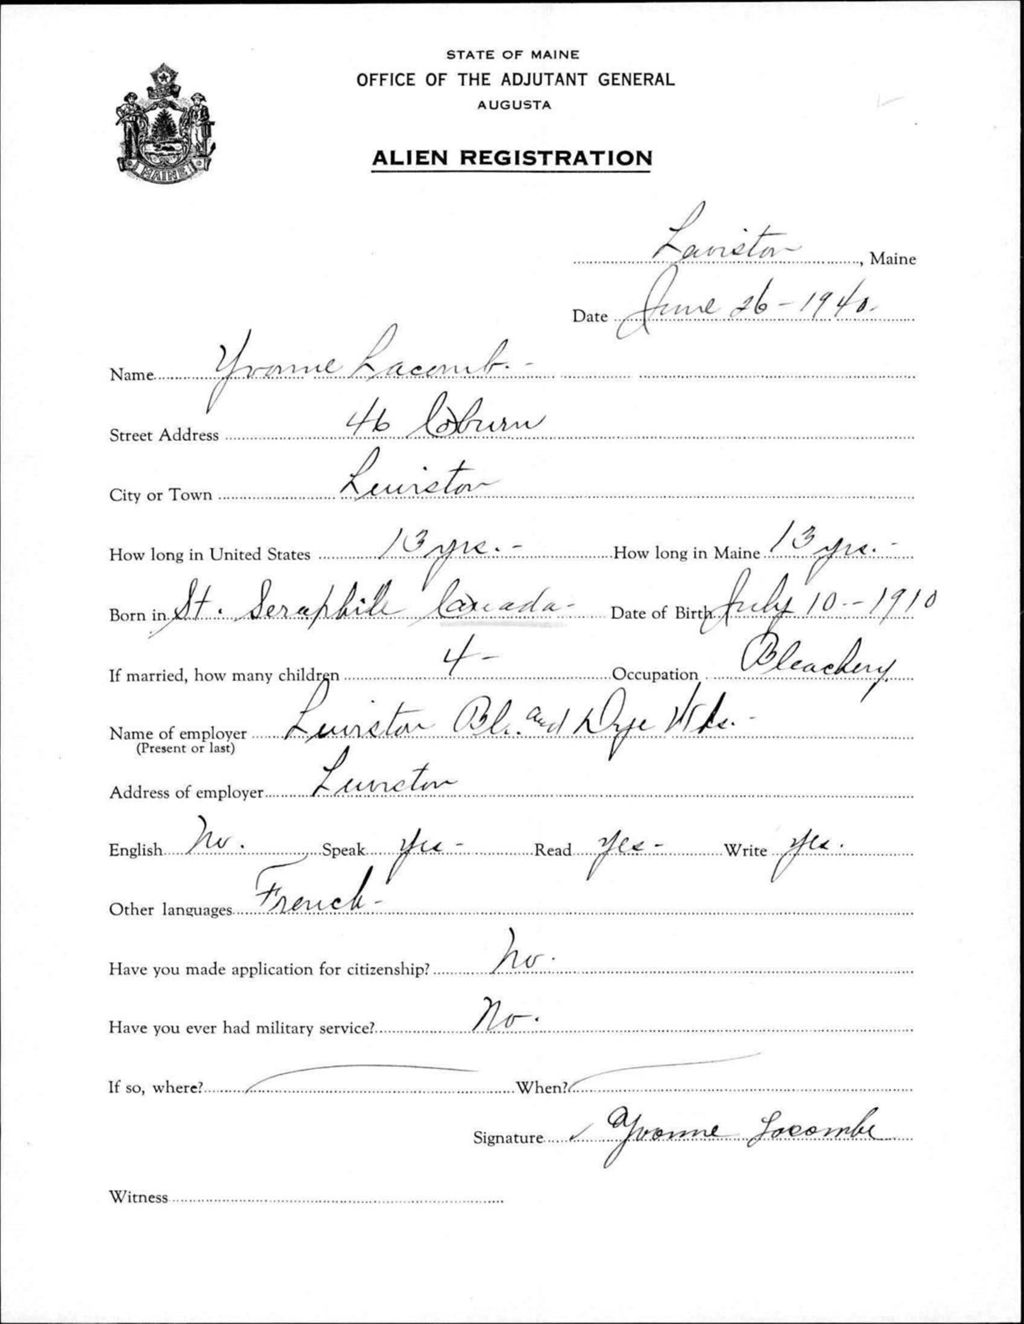 STATE OF MAINE
OFFICE OF THE ADJUTANT GENERAL
AUGUSTA
MAINE
ALIEN REGISTRATION
Lewiston, Maine
Date June 26 - 1940.
Name Yvonne Lacomb. -
Street Address 46 Coburn
City or Town Lewiston
How long in United States 13 yrs. - How long in Maine 13 yrs. -
Born in St. Seraphile Canada - Date of Birth July 10 - 1910
If married, how many children 4 - Occupation Bleachery
Name of employer Lewiston Bl. and Dye Wks. -
(Present or last)
Address of employer Lewiston
English No. Speak yes - Read yes - Write yes.
Other languages French -
Have you made application for citizenship? No.
Have you ever had military service? No.
If so, where? When?
Signature Yvonne Lacombe
Witness